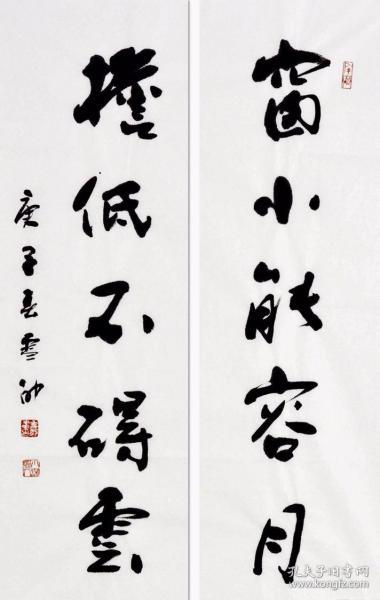 窗小能容月
檐低不碍雲
庚子春雲
孔夫子旧书网
kongfz.com